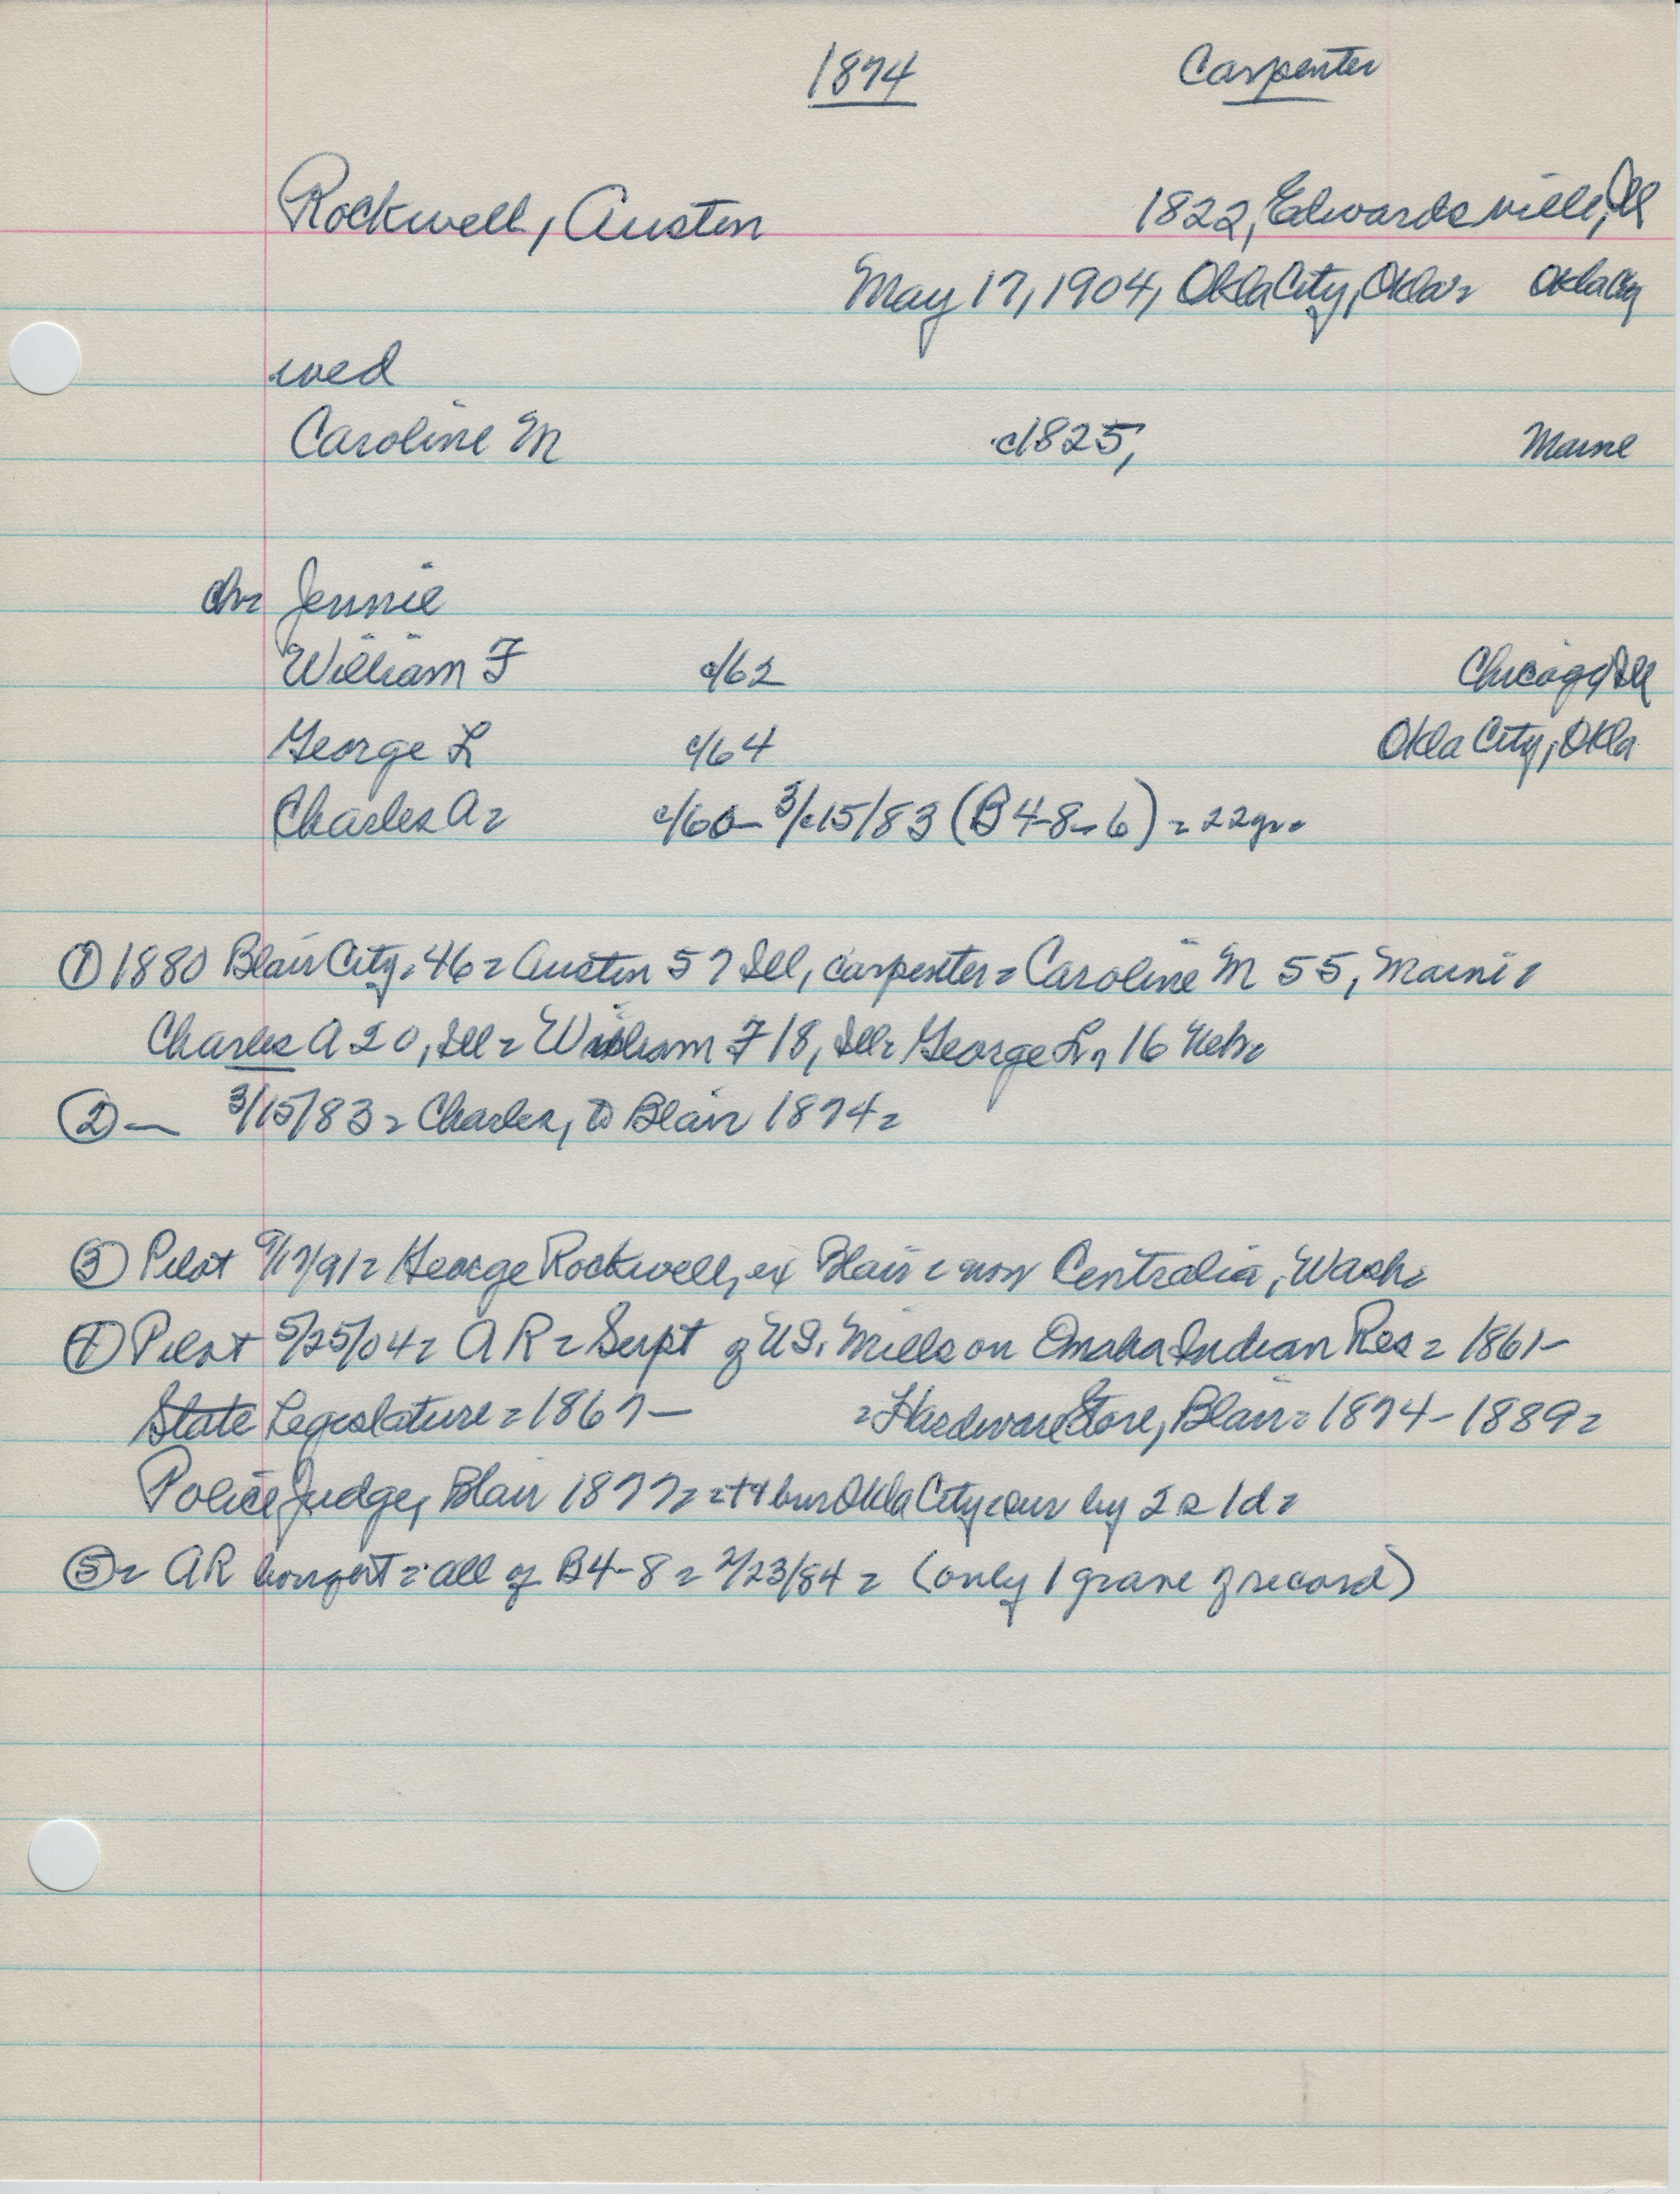 1874 Carpenter
Rockwell, Austin 1822, Edwardsville, Ill
May 17, 1904, Okla City, Okla = Okla City
wed
Caroline M c1825, Maine
ch = Jennie
William F c/62 Chicago, Ill
George L c/64 Okla City, Okla
Charles A = c/60 - 3/15/83 (B4-8-6) = 22 yr =
① 1880 Blair City = 46 = Austin 57 Ill, carpenter = Caroline M 55, Maine =
Charles A 20, Ill = William F 18, Ill = George L, 16 Nebr
② — 3/15/83 = Charles, to Blair 1874 =
③ Pilot 9/17/91 = George Rockwell, ex Blair = now Centralia, Wash =
④ Pilot 5/25/04 = A R = Supt of U.S. Mills on Omaha Indian Res = 1861 -
State Legislature = 1867 - = Hardware Store, Blair = 1874 - 1889 =
Police Judge, Blair 1877 = bur Okla City = sur by 2 s 1 d =
⑤ = AR bought = all of B4-8 = 2/23/84 = (only 1 grave of record)